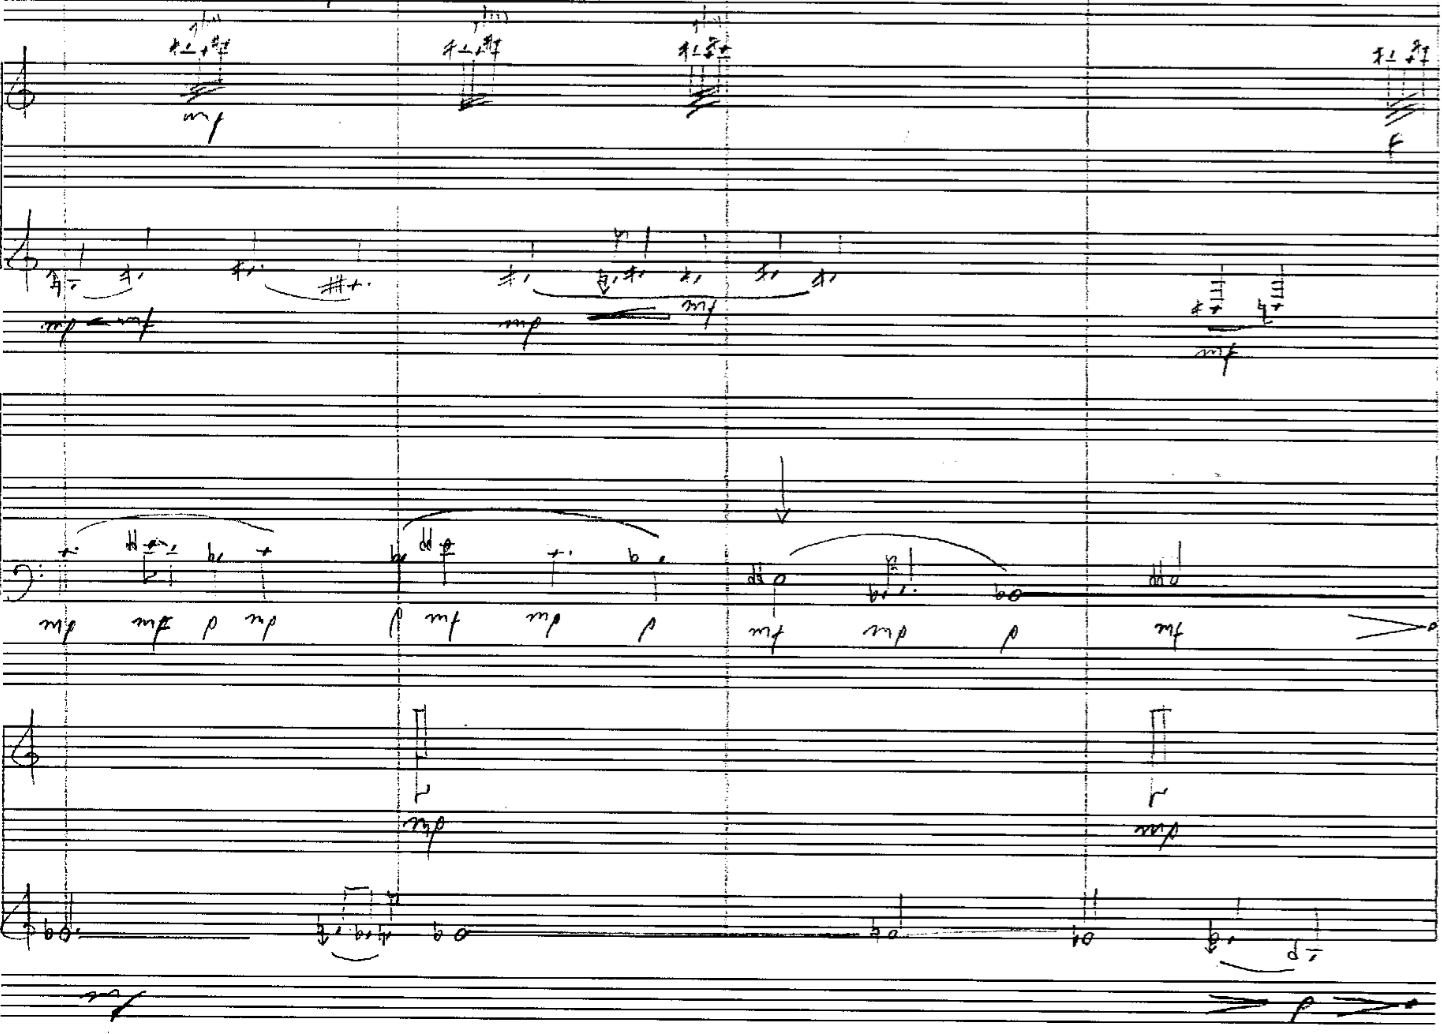 mf f
mp mf mp mf mf
mp mf p mp p mf mp p mf mp p mf
mp mp
mf p